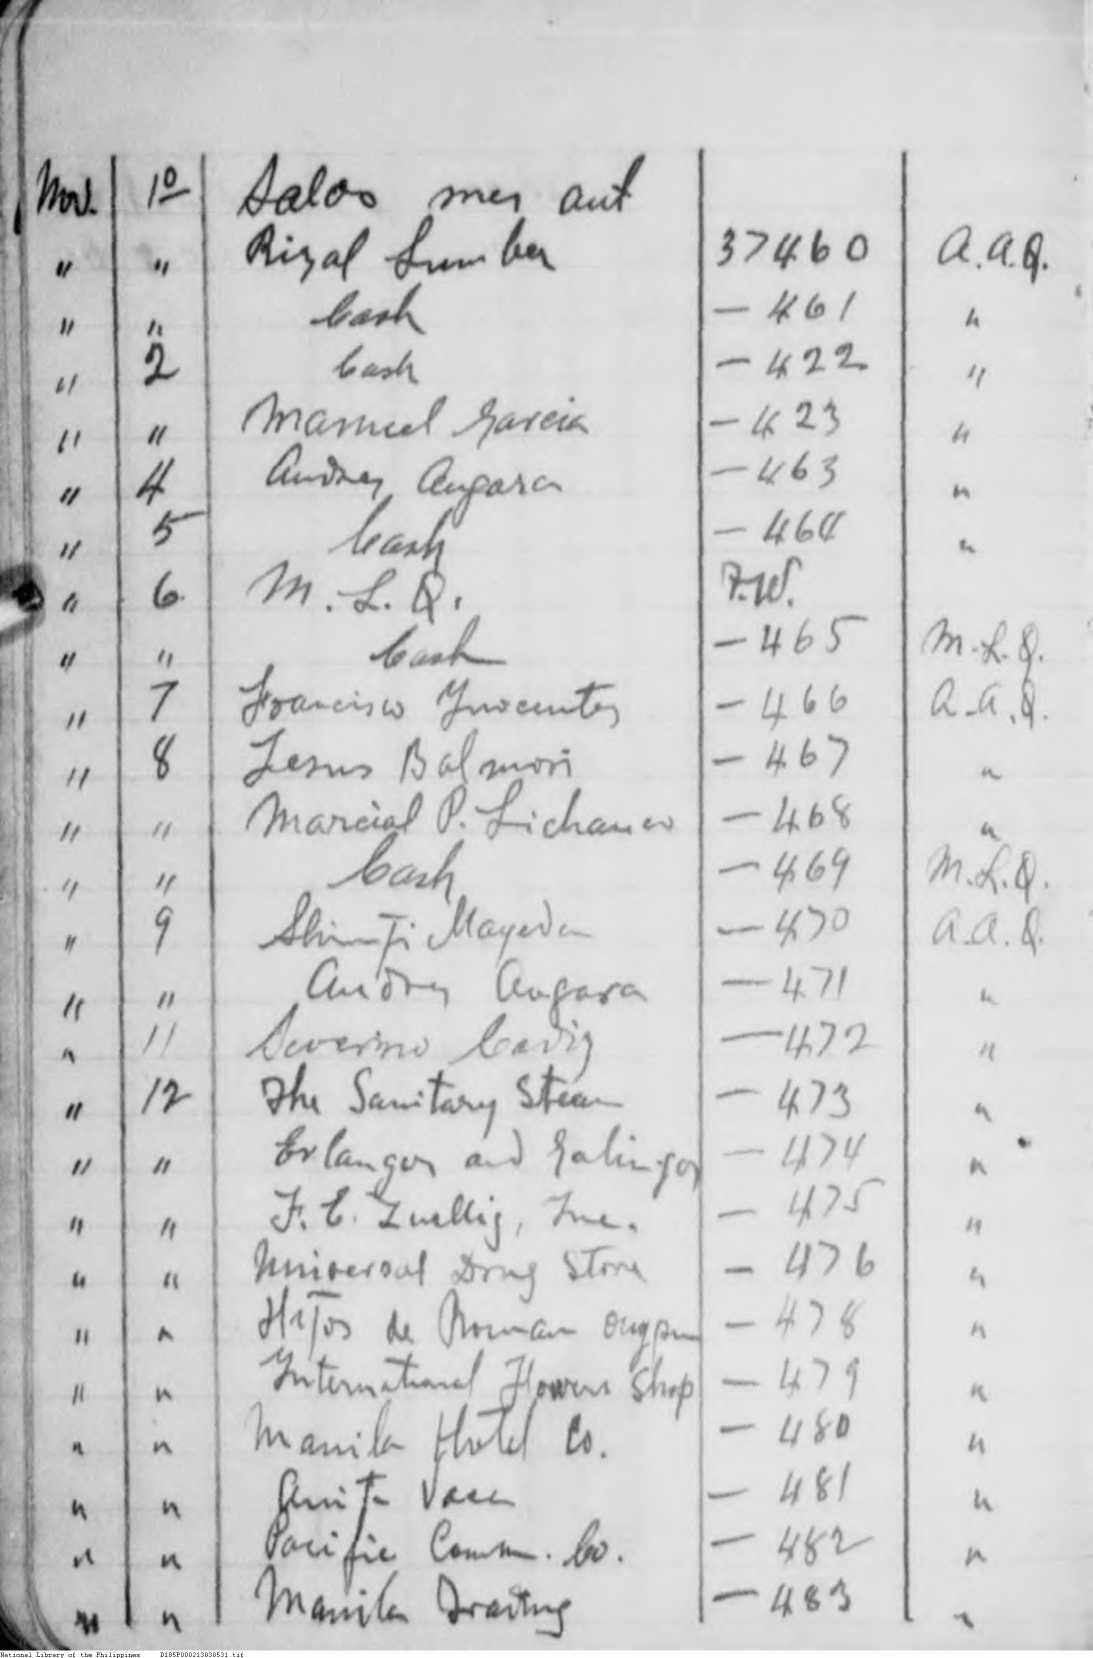 Nov. 10 Saldo mes ant
" " Rizal Lumber 37460 A.A.Q.
" " Cash — 461 "
" 2 Cash — 422 "
" " Manuel Garcia — 423 "
" 4 Andres Angara — 463 "
" 5 Cash — 464 "
" 6 M.L.Q. F.W.
" " Cash — 465 M.L.Q.
" 7 Francisco Inocentes — 466 A.A.Q.
" 8 Jesus Balmori — 467 "
" " Marcial P. Lichauco — 468 "
" " Cash — 469 M.L.Q.
" 9 Shinji Mayeda — 470 A.A.Q.
" " Andres Angara — 471 "
" 11 Severino — 472 "
" 12 The Sanitary Steam — 473 "
" " Erlanger and Galinger — 474 "
" " F. E. Zuellig, Inc. — 475 "
" " Universal Drug Store — 476 "
" " Hijos de Roman — 478 "
" " International Flowers Shop — 479 "
" " Manila Hotel Co. — 480 "
" " Anita — 481 "
" " Pacific Comm. Co. — 482 "
" " Manila Trading — 483 "
National Library of the Philippines D185P000213838531.tif